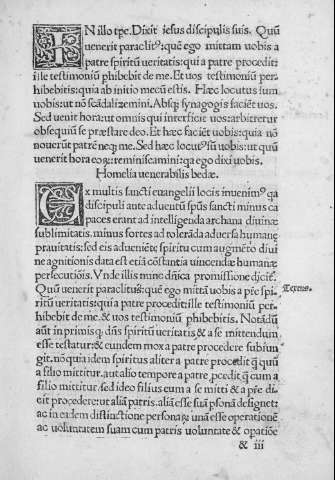 IN illo tpe. Dixit iesus discipulis suis. Quũ
uenerit paraclitꝰ: quẽ ego mittam uobis a
patre spiritũ ueritatis: qui a patre procedit:
ille testimoniũ phibebit de me. Et uos testimoniũ per⸗
hibebitis: quia ab initio mecũ estis. Hæc locutus sum
uobis: ut nõ scãdalizemini. Absq; synagogis faciẽt uos.
Sed uenit hora: ut omnis qui interficit uos: arbitretur
obsequiũ se præstare deo. Et hæc faciẽt uobis: quia nõ
nouerũt patrẽ neq; me. Sed hæc locutꝰ sũ uobis: ut quũ
uenerit hora eoꝝ: reminiscamini: qa ego dixi uobis.
Homelia uenerabilis bedæ.
EX multis sancti euangelii locis inuenimꝰ qa
discipuli ante aduentũ spũs sancti minus ca
paces erant ad intelligenda archana diuinæ
sublimitatis. minus fortes ad tolerãda aduersa humanę
prauitatis: sed eis adueniẽte spiritu cum augmẽto diui
ne agnitionis data est etiã cõstantia uincendæ humanæ
persecutiõis. Vnde illis nunc dñica promissione dicit̃.
Quũ uenerit paraclitus: quẽ ego mittã uobis a pr̃e spi⸗
Textus.
ritũ ueritatis: qui a patre procedit: ille testimoniũ per⸗
hibebit de me. & uos testimoniũ phibebitis. Notãdũ
aũt in primis q; dñs spiritũ ueritatis & a se mittendum
esse testatur: & eundem mox a patre procedere subiun
git. nõ quia idem spiritus aliter a patre procedit q̃ quũ
a filio mittitur. aut alio tempore a patre ꝓcedit q̃ cum a
filio mittitur. sed ideo filius eum a se mitti & a pr̃e di⸗
cit procedere: ut aliã patris. aliã esse suã psonã designet:
ac in eadem distinctione personaꝝ unã esse operationẽ
ac uoluntatem suam cum patris uoluntate & opatiõe
& iii